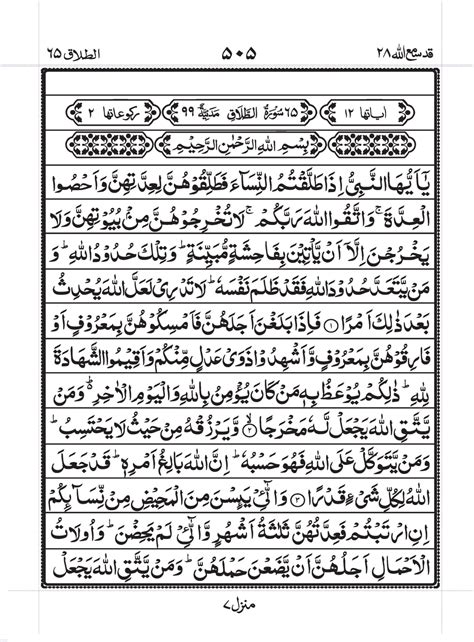 قد سمع الله ۲۸ ۵۰۵ الطلاق ۶۵
اٰیاتها ۱۲ ۶۵ سُوْرَةُ الطَّلَاقِ مَدَنِيَّةٌ ۹۹ رکوعاتها ۲
بِسْمِ اللهِ الرَّحْمٰنِ الرَّحِيْمِ
يٰۤاَيُّهَا النَّبِيُّ اِذَا طَلَّقْتُمُ النِّسَآءَ فَطَلِّقُوْهُنَّ لِعِدَّتِهِنَّ وَاَحْصُوا
الْعِدَّةَ ۚ وَاتَّقُوا اللهَ رَبَّكُمْ ۚ لَا تُخْرِجُوْهُنَّ مِنْۢ بُيُوْتِهِنَّ وَلَا
يَخْرُجْنَ اِلَّاۤ اَنْ يَّاْتِيْنَ بِفَاحِشَةٍ مُّبَيِّنَةٍ ؕ وَتِلْكَ حُدُوْدُ اللهِ ؕ وَ
مَنْ يَّتَعَدَّ حُدُوْدَ اللهِ فَقَدْ ظَلَمَ نَفْسَهٗ ؕ لَا تَدْرِيْ لَعَلَّ اللهَ يُحْدِثُ
بَعْدَ ذٰلِكَ اَمْرًا ۝۱ فَاِذَا بَلَغْنَ اَجَلَهُنَّ فَاَمْسِكُوْهُنَّ بِمَعْرُوْفٍ اَوْ
فَارِقُوْهُنَّ بِمَعْرُوْفٍ وَّاَشْهِدُوْا ذَوَيْ عَدْلٍ مِّنْكُمْ وَاَقِيْمُوا الشَّهَادَةَ
لِلّٰهِ ؕ ذٰلِكُمْ يُوْعَظُ بِهٖ مَنْ كَانَ يُؤْمِنُ بِاللهِ وَالْيَوْمِ الْاٰخِرِ ۬ؕ وَمَنْ
يَّتَّقِ اللهَ يَجْعَلْ لَّهٗ مَخْرَجًا ۝۲ وَّيَرْزُقْهُ مِنْ حَيْثُ لَا يَحْتَسِبُ ؕ
وَمَنْ يَّتَوَكَّلْ عَلَى اللهِ فَهُوَ حَسْبُهٗ ؕ اِنَّ اللهَ بَالِغُ اَمْرِهٖ ؕ قَدْ جَعَلَ
اللهُ لِكُلِّ شَيْءٍ قَدْرًا ۝۳ وَالّٰٓـئِیْ يَئِسْنَ مِنَ الْمَحِيْضِ مِنْ نِّسَآئِكُمْ
اِنِ ارْتَبْتُمْ فَعِدَّتُهُنَّ ثَلٰثَةُ اَشْهُرٍ وَّالّٰٓـئِیْ لَمْ يَحِضْنَ ؕ وَاُولَاتُ
الْاَحْمَالِ اَجَلُهُنَّ اَنْ يَّضَعْنَ حَمْلَهُنَّ ؕ وَمَنْ يَّتَّقِ اللهَ يَجْعَلْ
منزل ۷